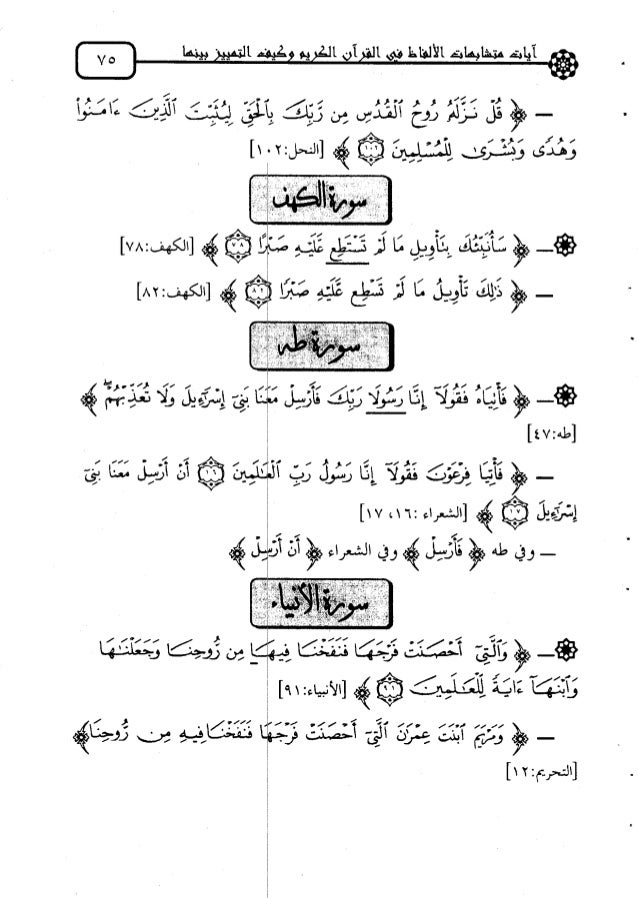 آيات متشابهات الألفاظ في القرآن الكريم وكيف التمييز بينها
٧٥
– ﴿ قُلْ نَزَّلَهُۥ رُوحُ ٱلْقُدُسِ مِن رَّبِّكَ بِٱلْحَقِّ لِيُثَبِّتَ ٱلَّذِينَ ءَامَنُوا۟
وَهُدًى وَبُشْرَىٰ لِلْمُسْلِمِينَ ١٠٢ ﴾ [النحل:١٠٢]
سورة الكهف
– ﴿ سَأُنَبِّئُكَ بِتَأْوِيلِ مَا لَمْ تَسْتَطِع عَّلَيْهِ صَبْرًا ٧٨ ﴾ [الكهف:٧٨]
– ﴿ ذَٰلِكَ تَأْوِيلُ مَا لَمْ تَسْطِع عَّلَيْهِ صَبْرًا ٨٢ ﴾ [الكهف:٨٢]
سورة طه
– ﴿ فَأْتِيَاهُ فَقُولَآ إِنَّا رَسُولَا رَبِّكَ فَأَرْسِلْ مَعَنَا بَنِىٓ إِسْرَٰٓءِيلَ وَلَا تُعَذِّبْهُمْ ﴾
[طه:٤٧]
– ﴿ فَأْتِيَا فِرْعَوْنَ فَقُولَآ إِنَّا رَسُولُ رَبِّ ٱلْعَٰلَمِينَ ١٦ أَنْ أَرْسِلْ مَعَنَا بَنِىٓ
إِسْرَٰٓءِيلَ ١٧ ﴾ [الشعراء :١٦، ١٧]
– وفي طه ﴿ فَأَرْسِلْ ﴾ وفي الشعراء ﴿ أَنْ أَرْسِلْ ﴾
سورة الأنبياء
– ﴿ وَٱلَّتِىٓ أَحْصَنَتْ فَرْجَهَا فَنَفَخْنَا فِيهَا مِن رُّوحِنَا وَجَعَلْنَٰهَا
وَٱبْنَهَآ ءَايَةً لِّلْعَٰلَمِينَ ٩١ ﴾ [الأنبياء:٩١]
– ﴿ وَمَرْيَمَ ٱبْنَتَ عِمْرَٰنَ ٱلَّتِىٓ أَحْصَنَتْ فَرْجَهَا فَنَفَخْنَا فِيهِ مِن رُّوحِنَا ﴾
[التحريم:١٢]